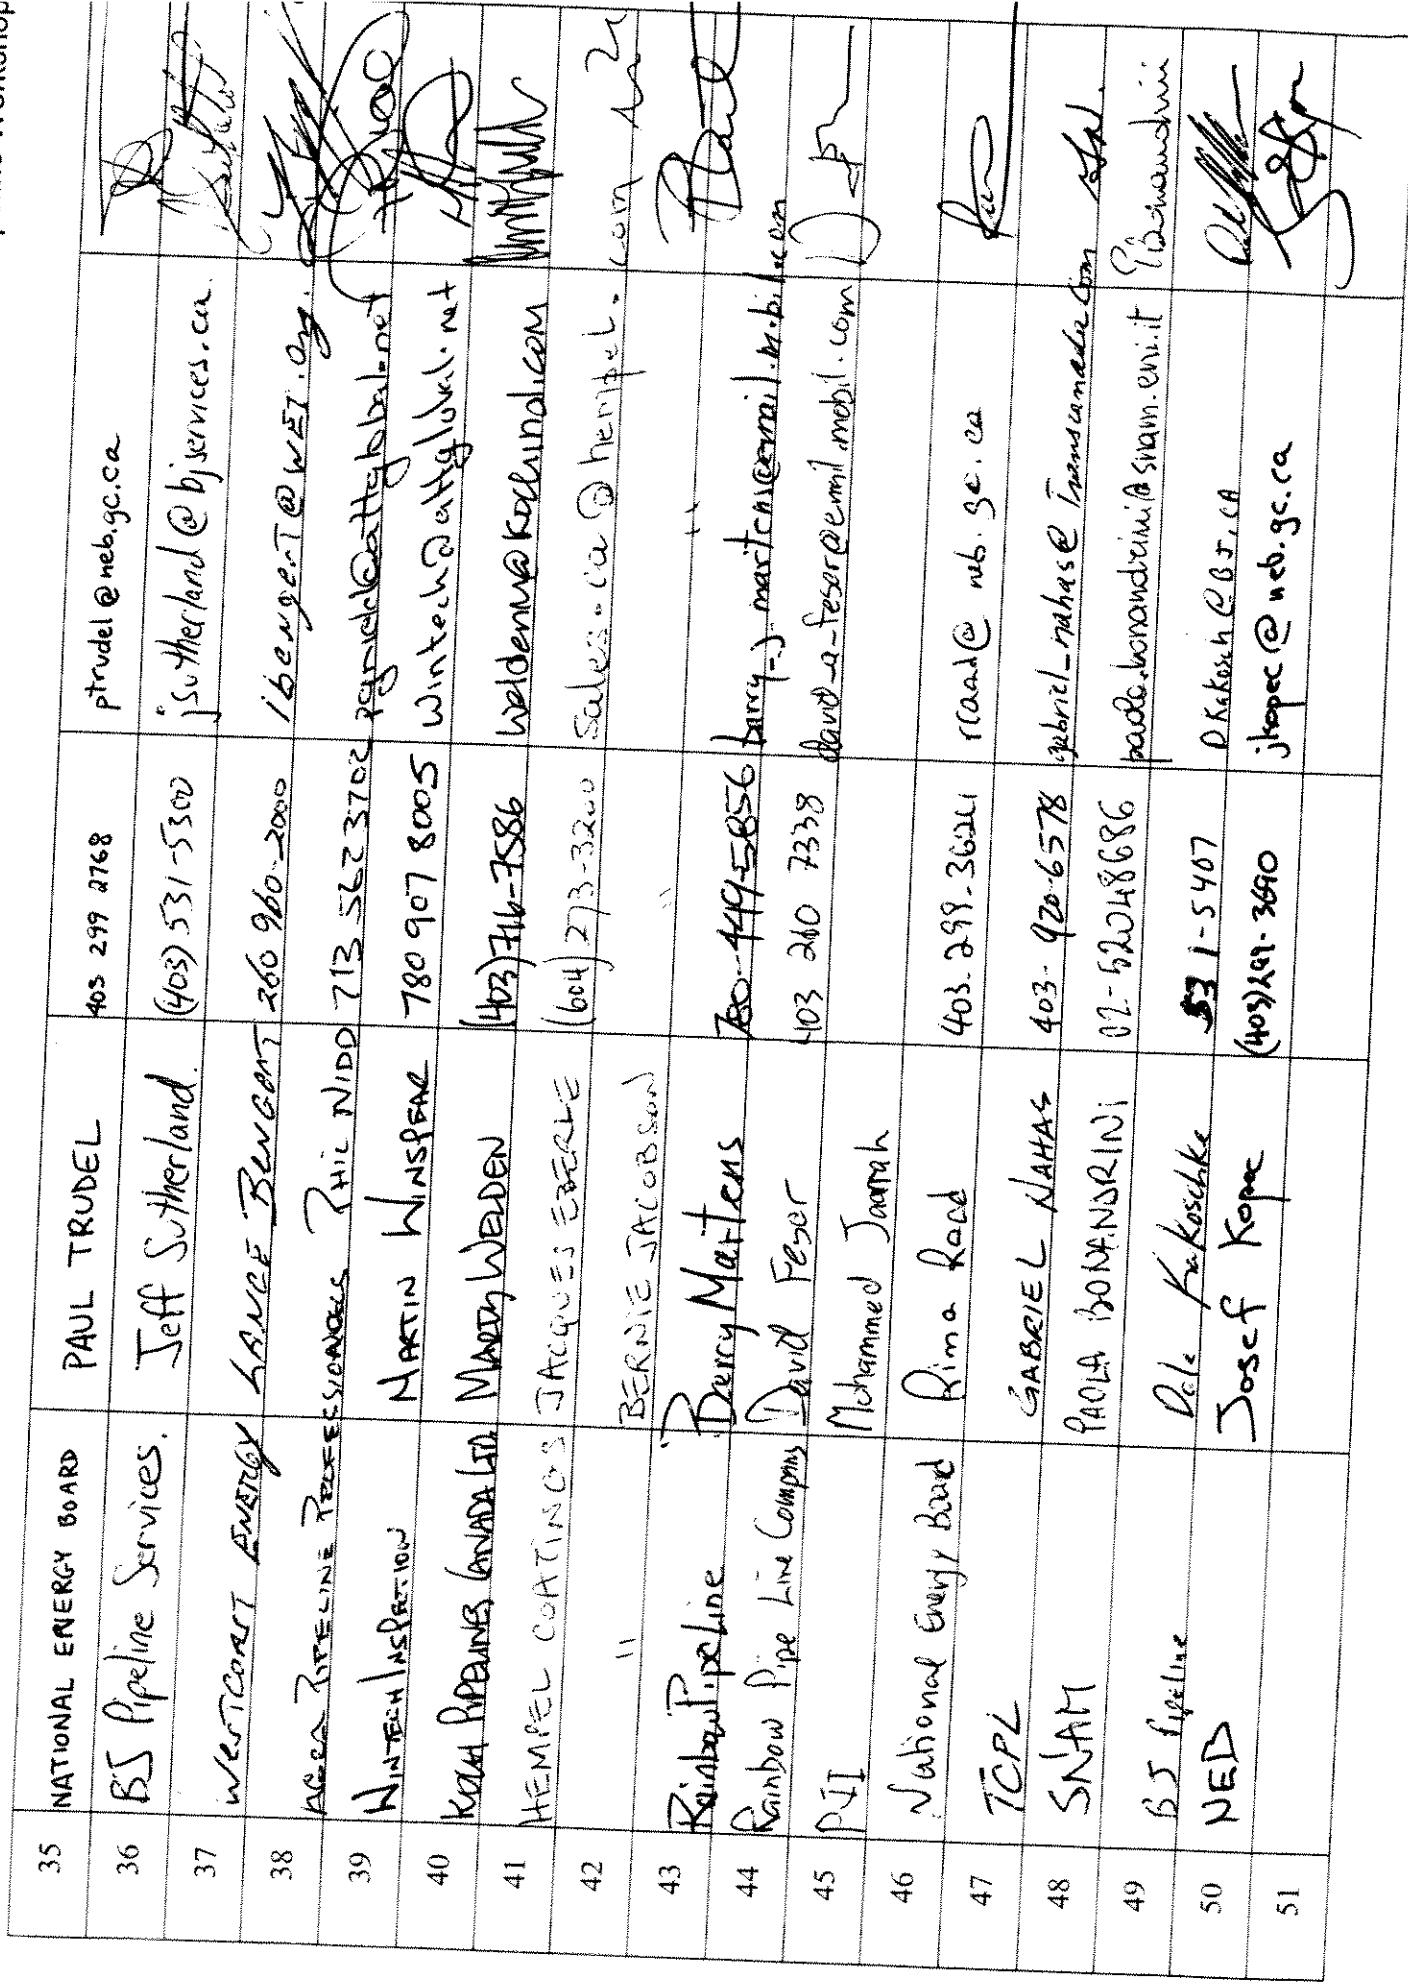 35 NATIONAL ENERGY BOARD PAUL TRUDEL 403 299 2768 ptrudel@neb.gc.ca
36 BJ Pipeline Services. Jeff Sutherland. (403) 531-5300 jsutherland@bjservices.ca.
37 WESTCOAST ENERGY LANCE BENGERT 260 960-2000 ibengerT@WEI.org.
38 PIPELINE PROFESSIONALS PHIL NIDD 713 562 3702 pgnidd@attglobal.net
39 WINTECH INSPECTION MARTIN WINSPEAR 780 907 8005 wintech@attglobal.net
40 KOCH PIPELINES CANADA LTD. MARTY WELDEN (403) 716-7586 weldenm@kochind.com
41 HEMPEL COATINGS JACQUES EBERLE (604) 273-3200 sales-ca@hempel.com
42 " BERNIE JACOBSON " "
43 Rainbow Pipe Line Barry Martens 780-449-5856 barry-j-martens@email.mobil.com
44 Rainbow Pipe Line Company David Feser 403 260 7338 david-a-feser@email.mobil.com
45 PII Mohammed Jaarah
46 National Energy Board Rima Raad 403-299-3621 rraad@neb.gc.ca
47 TCPL GABRIEL NAHAS 403-920-6578 gabriel_nahas@Transcanada.com
48 SNAM PAOLA BONANDRINI 02-52048686 paola.bonandrini@snam.eni.it
49 BJ Pipeline Dale Kakoschke 531-5407 DKakosch@BJ.CA
50 NEB Josef Kopec (403)299-3690 jkopec@neb.gc.ca
51